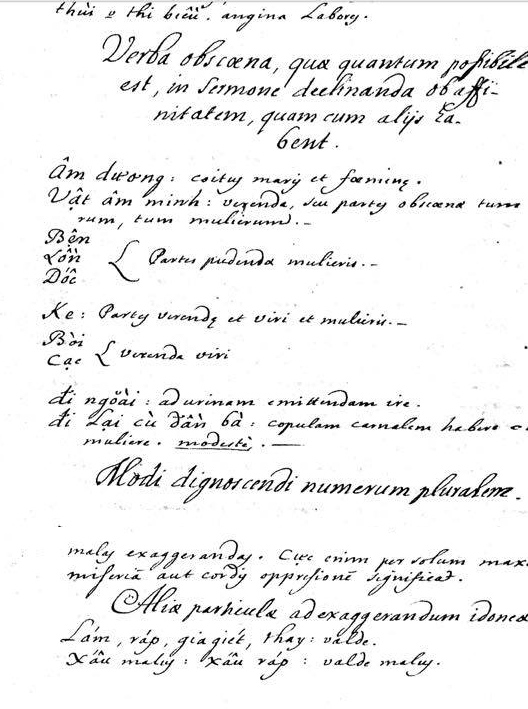 thủi ɞ thi biẽũ. angina Labory.
Verba obscœna, quæ quantum possibile
est, in sermone declinanda ob affi-
nitatem, quam cum alijs ha-
bent.
Âm dương: coitus maris et fœminę.
Vật âm minh: verenda, seu partes obscœnæ tum vi
rum, tum mulierum. –
Bẽn
Lồn
Dốc
{ Partes pudendæ mulieris. –
Ke: Partes verendę et viri et mulieris. –
Bòi
Cạc
{ verenda viri
đi ngŏài: ad urinam emittendam ire.
đi lại cù đần bà: copulam carnalem habere
muliere. modestè. —
Modi dignoscendi numerum pluralem.
malis exaggerandas. Cực enim per solum max
miseriã aut cordis oppresionẽ significat.
Aliæ particulæ ad exaggerandum idoneæ
Lám, ráp, gia giét, thay: valde.
Xấu malus: xấu ráp: valde malus.